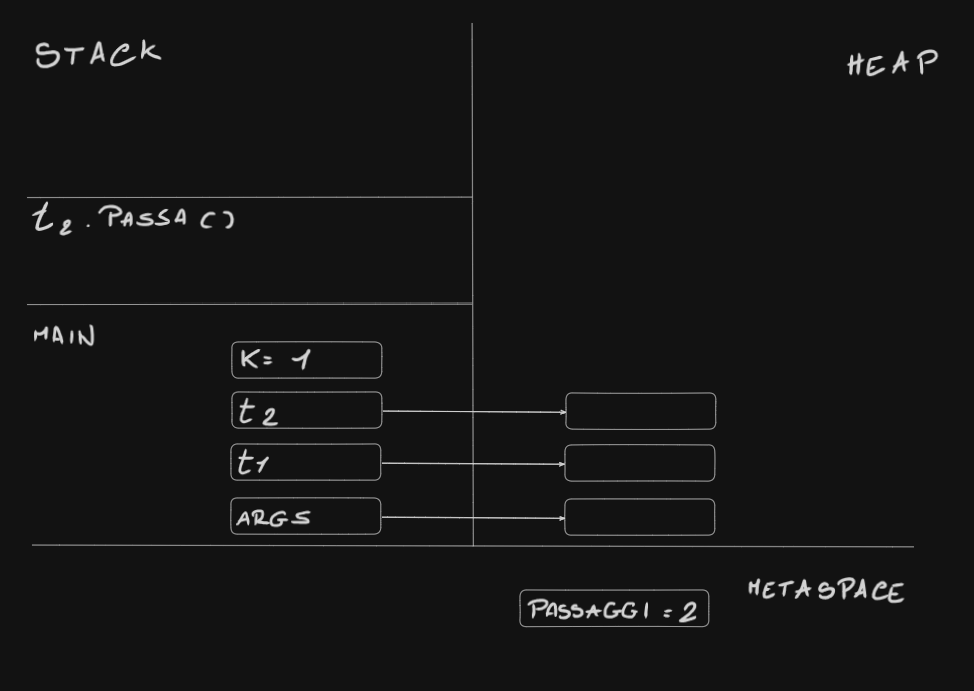 STACK
HEAP
t2.PASSA()
MAIN
K= 1
t2
t1
ARGS
METASPACE
PASSAGGI = 2